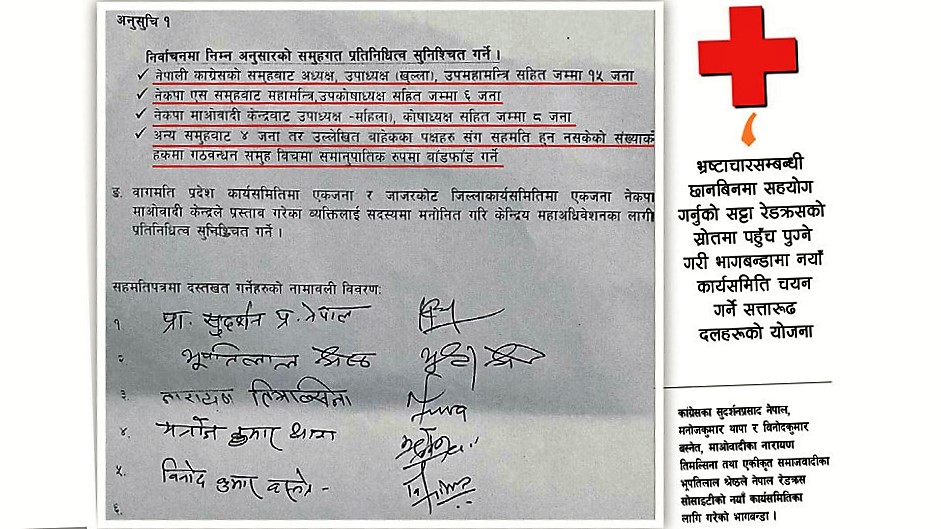 अनुसुचि १
निर्वाचनमा निम्न अनुसारको समुहगत प्रतिनिधित्व सुनिश्चित गर्ने ।
✓ नेपाली काग्रेसको समुहबाट अध्यक्ष, उपाध्यक्ष (खुल्ला), उपमहामन्त्रि सहित जम्मा १५ जना
✓ नेकपा एस समुहबाट महामन्त्रि,उपकोषाध्यक्ष सहित जम्मा ६ जना
✓ नेकपा माओवादी केन्द्रबाट उपाध्यक्ष -महिला), कोषाध्यक्ष सहित जम्मा ८ जना
✓ अन्य समुहबाट ४ जना तर उल्लेखित बाहेकका पक्षहरु संग सहमति हुन नसकेको संख्याको
हकमा गठवन्धन समुह बिचमा समानुपातिक रुपमा बांडफांड गर्ने
ङ. वागमति प्रदेश कार्यसमितिमा एकजना र जाजरकोट जिल्लाकार्यसमितिमा एकजना नेकपा
माओवादी केन्द्रले प्रस्ताव गरेका व्यक्तिलाई सदस्यमा मनोनित गरि केन्द्रिय महाअधिवेशनका लागी
प्रतिनिधित्व सुनिश्चित गर्ने ।
सहमतिपत्रमा दस्तखत गर्नेहरुको नामावली विवरण:
१ प्रा. सुदर्शन प्र. नेपाल
२ भूपतिलाल श्रेष्ठ
३. नारायण तिमल्सिना
४. मनोज कुमार थापा
५. विनोद कुमार बस्नेत -
६.
भ्रष्टाचारसम्बन्धी
छानबिनमा सहयोग
गर्नुको सट्टा रेडक्रसको
स्रोतमा पहुँच पुग्ने
गरी भागबन्डामा नयाँ
कार्यसमिति चयन
गर्ने सत्तारूढ
दलहरूको योजना
कांग्रेसका सुदर्शनप्रसाद नेपाल,
मनोजकुमार थापा र विनोदकुमार
बस्नेत, माओवादीका नारायण
तिमल्सिना तथा एकीकृत समाजवादीका
भूपतिलाल श्रेष्ठले नेपाल रेडक्रस
सोसाइटीको नयाँ कार्यसमितिका
लागि गरेको भागबन्डा ।